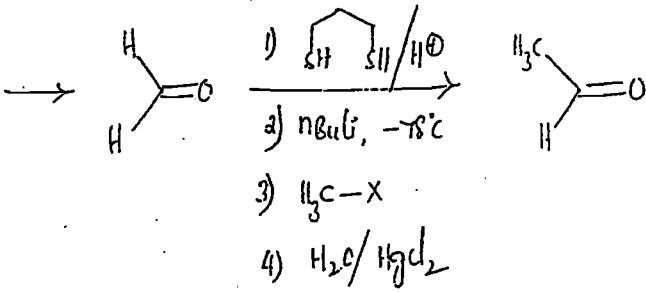 H
H
O
1) SH SH / H⊕
2) nBuLi, -78°C
3) H₃C-X
4) H₂O/HgCl₂
H₃C
H
O